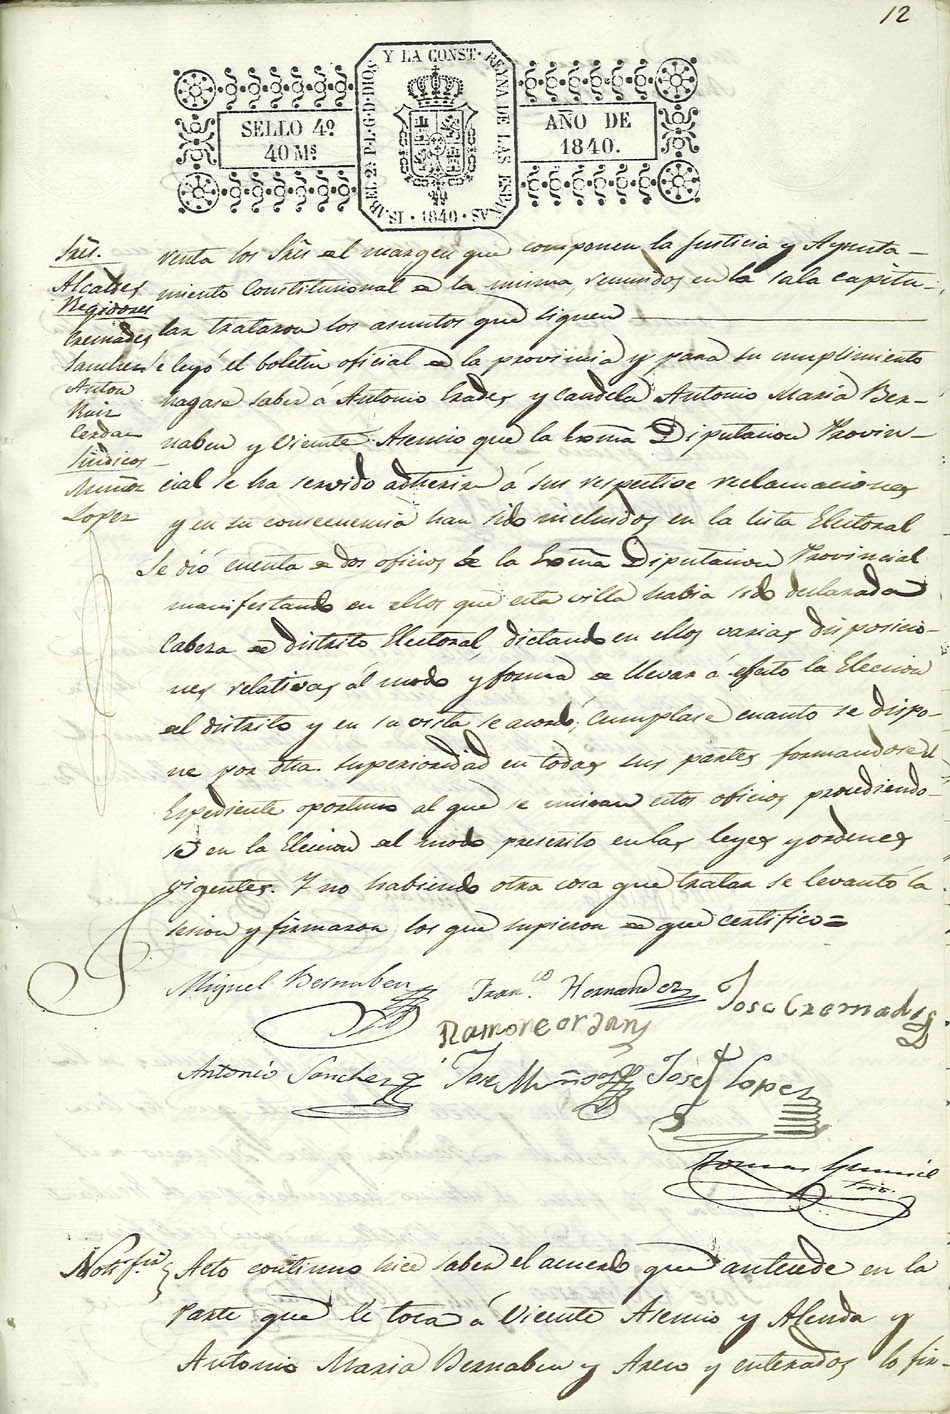 12
ISABEL 2ª P.L.G.D.DIOS Y LA CONST. REYNA DE LAS ESPAÑAS
1840
SELLO 4º
40 Mˢ
AÑO DE
1840.
Sres.
Alcaldes
Regidores
Cremades
Sanchez
Anton
Ruiz
Cerdan
Sindicos
Muñoz
Lopez
venta los Sres del margen que componen la Justicia y Ayunta-
miento Constitucional de la misma, reunidos en la sala capitu-
lar trataron los asuntos que siguen
Se leyó el boletin oficial de la provincia y para su cumplimiento
hagase saber á Antonio Prades y Candela Antonio Maria Ber-
nabeu y Vicente Asensio que la Exma Diputacion Provin-
cial se ha servido adherir á sus respectivas reclamaciones
y en su consecuencia han sido incluidos en la lista Electoral
Se dió cuenta de dos oficios de la Exma Diputacion Provincial
manifestando en ellos que esta villa habia sido declarada
Cabeza de distrito Electoral, dictando en ellos varias disposicio-
nes relativas al modo y forma de llevar á efecto la Eleccion
del distrito y en su vista se acordó; Cumplase cuanto se dispo-
ne por dha. superioridad en todas sus partes formandose el
Espediente oportuno al que se uniran estos oficios procediendo-
se en la Eleccion del modo prescrito en las leyes y ordenes
vigentes. Y no habiendo otra cosa que tratar se levantó la
sesion y firmaron los que supieron de que certifico =
Miguel Bernabeu
Franco. Hernandez
Jose Cremades
Ramon cerdan
Antonio Sanchez
Jose Muños
Jose Lopez
Tomas
Srio.
Notifon. Acto continuo hice saber el acuerdo que antecede en la
parte que le toca á Vicente Asensio y Alenda y
Antonio Maria Bernabeu y y enterados lo fir-